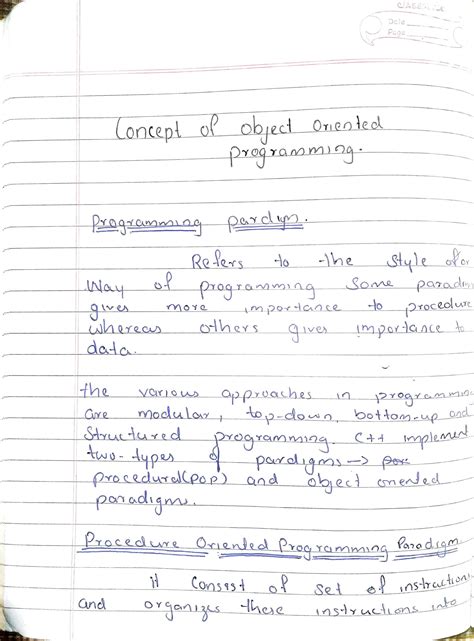 CLASSMATE
Date
Page
Concept of object Oriented
programming.
Programming pardigm.
Refers to the style or
Way of programming Some paradim
gives more importance to procedure
whereas others gives importance to
data.
the various approaches in programming
are modular, top-down, bottom-up and
Structured programming. C++ implement
two-types of pardigms →
procedural(POP) and object oriented
paradigms.
Procedure Oriented Programming Paradigm.
it Consist of set of instructions
and organizes these instructions into